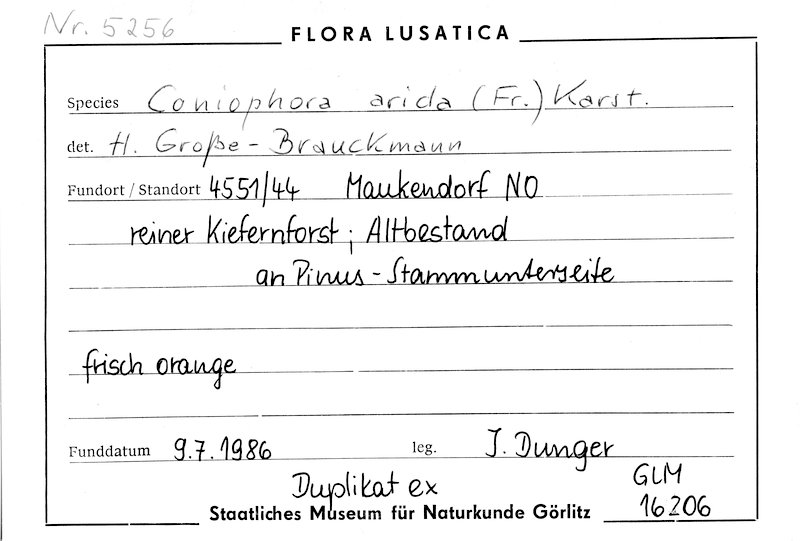 Nr. 5256
FLORA LUSATICA
Species Coniophora arida (Fr.) Karst.
det. H. Große-Brauckmann
Fundort / Standort 4551/44 Maukendorf NO
reiner Kiefernforst; Altbestand
an Pinus-Stammunterseite
frisch orange
Funddatum 9.7.1986 leg. I. Dunger
Duplikat ex GLM
Staatliches Museum für Naturkunde Görlitz 16206